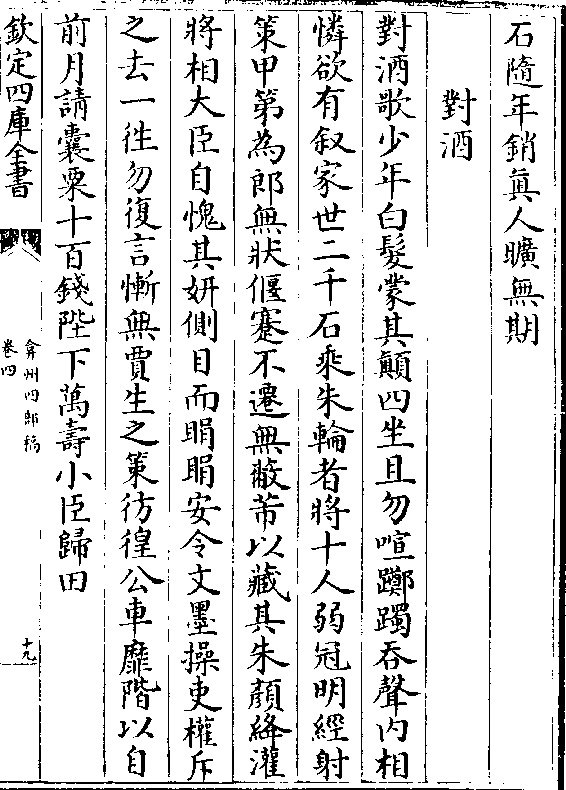 石隨年銷真人曠無期
對酒
對酒歌少年白髮蒙其顛四坐且勿喧躑躅吞聲內相
憐欲有叙家世二千石乘朱輪者將十人弱冠明經射
策甲第為郎無狀偃蹇不遷無蔽芾以藏其朱顏絳灌
將相大臣自愧其妍側目而睊睊安令文墨操吏權斥
之去一徃勿復言慚無賈生之策彷徨公車靡階以自
前月請囊粟十百錢陛下萬壽小臣歸田
欽定四庫全書
弇州四部稿
卷四
十九